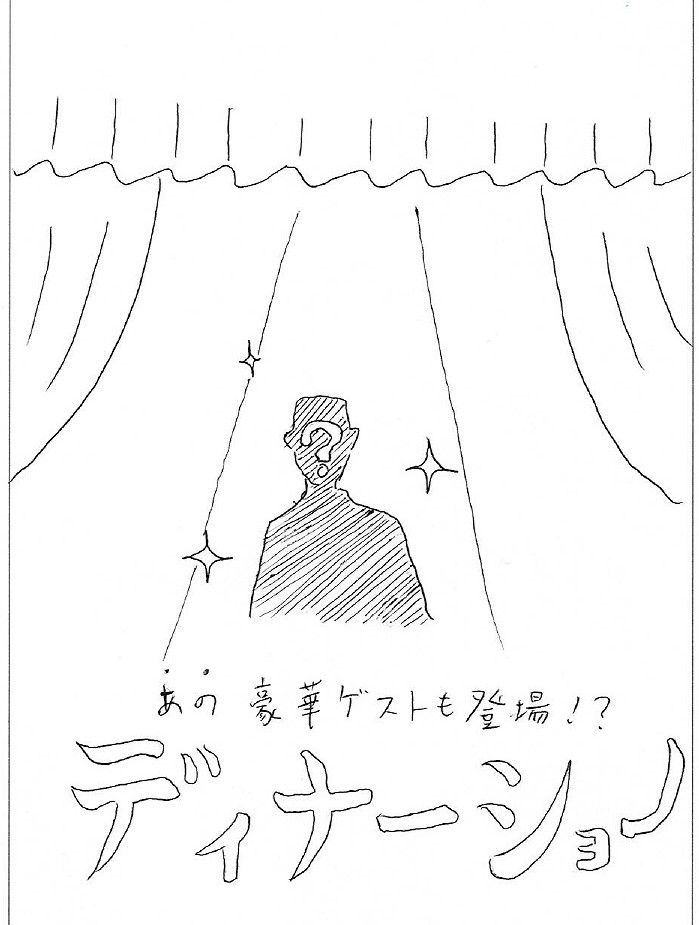 ?
あの豪華ゲストも登場!?
ディナーショー